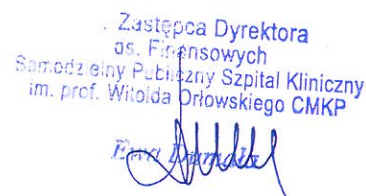 Zastępca Dyrektora
ds. Finansowych
Samodzielny Publiczny Szpital Kliniczny
im. prof. Witolda Orłowskiego CMKP
Ewa